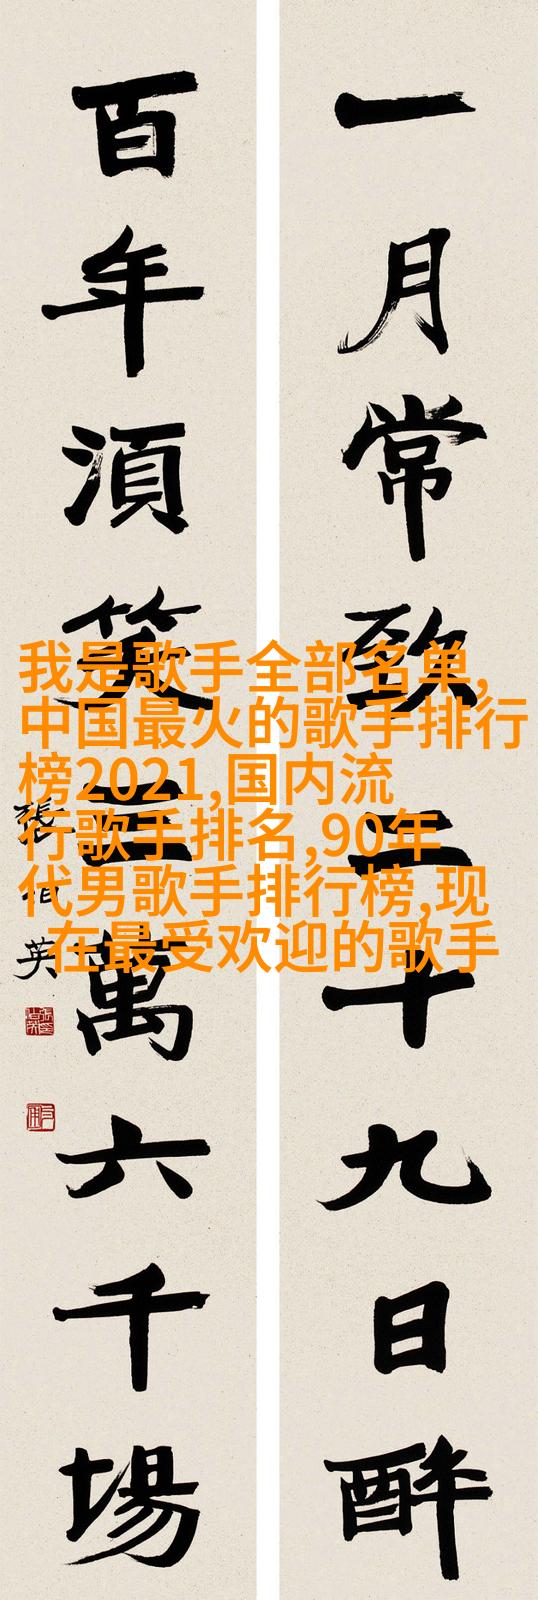 一月常致二十九日醉
百年湏笑三萬六千場
張伯英
我是歌手全部名单,
中国最火的歌手排行
榜2021,国内流
行歌手排名,90年
代男歌手排行榜,现
在最受欢迎的歌手